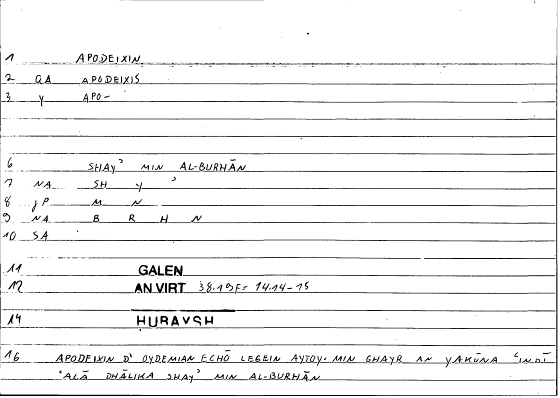 1 APODEIXIN
2 QA APODEIXIS
3 y APO-
6 SHAYʾ MIN AL-BURHĀN
7 NA SH y ʾ
8 JP M N
9 NA B R H N
10 SA
11 GALEN
12 AN VIRT 38.19F= 14.14-15
14 HUBAYSH
16 APODEIXIN D' OYDEMIAN ECHŌ LEGEIN AYTOY. MIN GHAYR AN YAKŪNA ʿINDĪ
ʿALĀ DHĀLIKA SHAYʾ MIN AL-BURHĀN